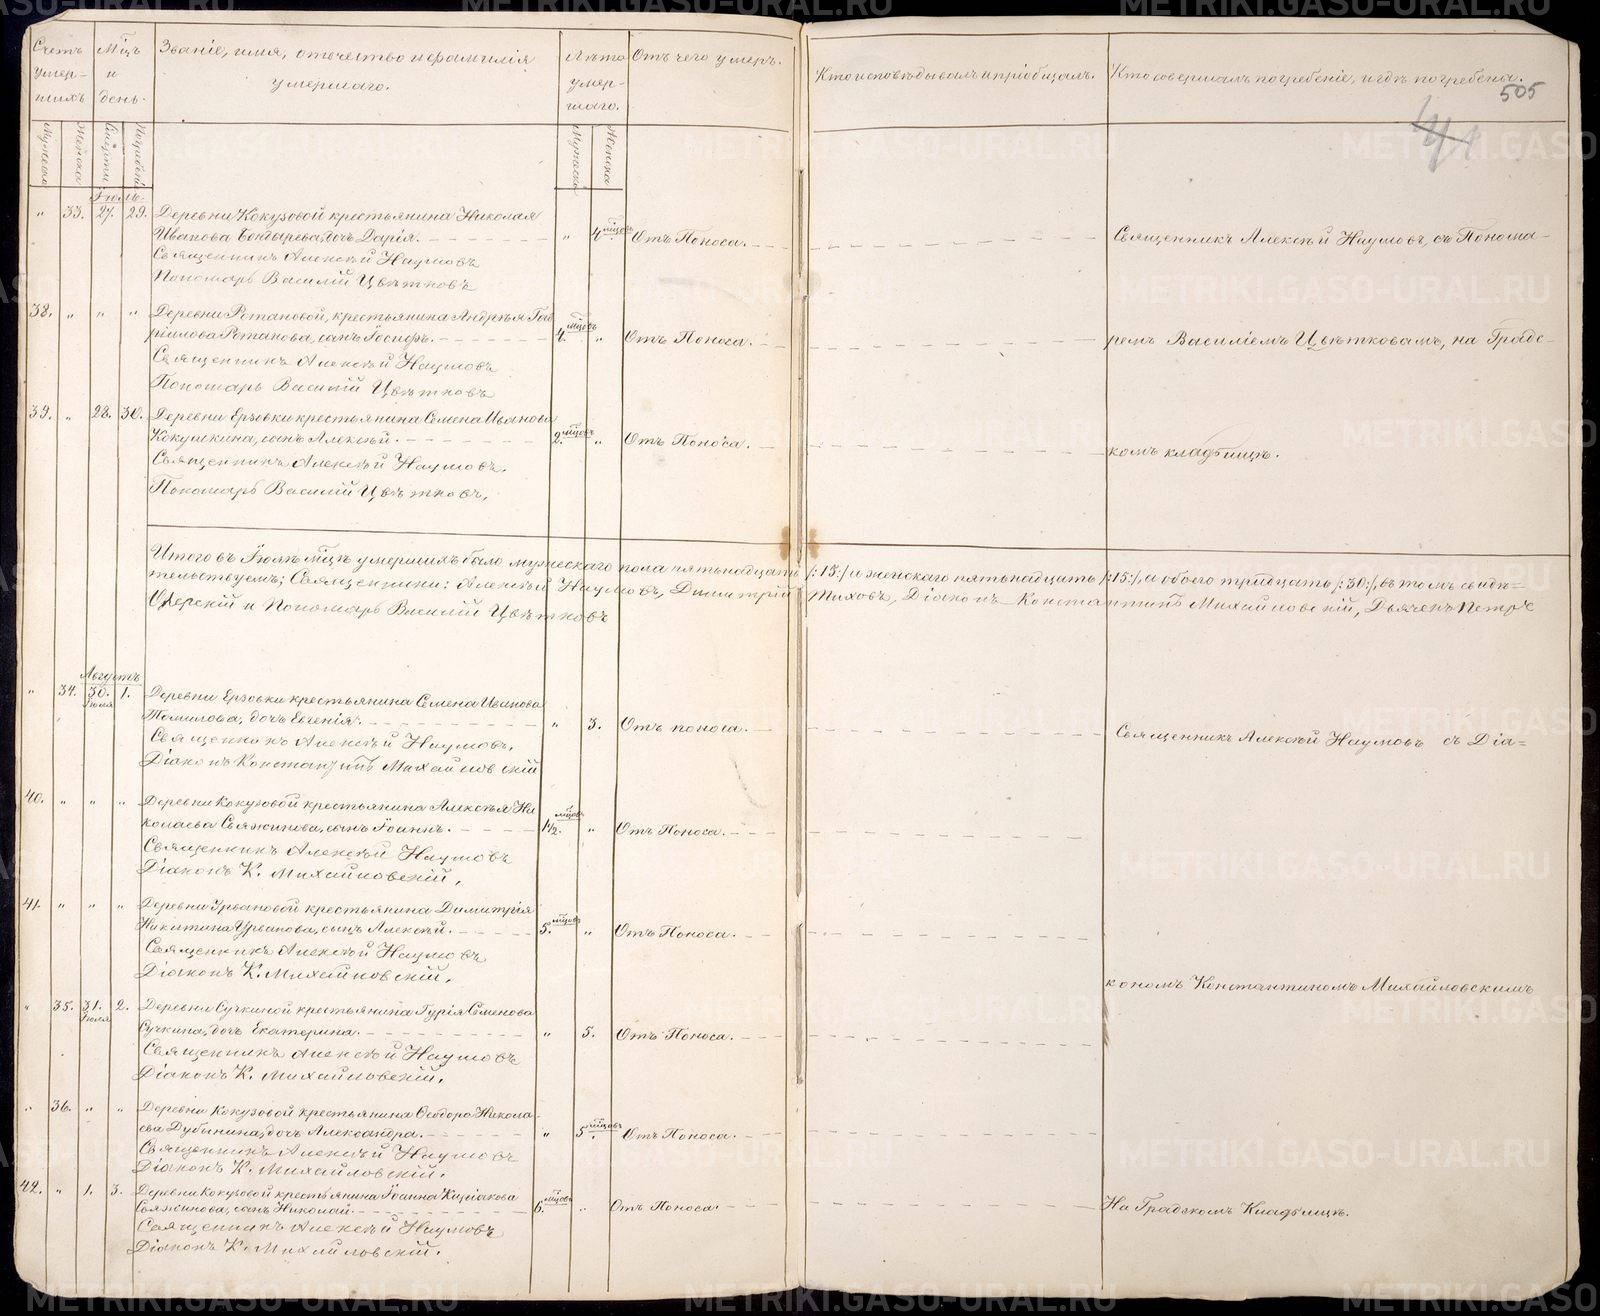 Счетъ умер-шихъ
Мцъ и день.
Званіе, имя, отчество и фамилія умершаго.
Лѣта умер-шаго.
Отъ чего умеръ.
Кто исповѣдывалъ и пріобщалъ.
Кто совершалъ погребеніе, и гдѣ погребены.
505
Мужеска
Женска
Смерти
Погребенія
Мужеска
Женска
Іюль.
„ 33. 27. 29. Деревни Кокузовой крестьянина Николая
Иванова Бондырева, дочь Дарія. „ 4 мцовъ Отъ Поноса. Священникъ Алексѣй Наумовъ, съ Понома-
Священникъ Алексѣй Наумовъ
Пономарь Василій Цвѣтковъ
38. „ „ „ Деревни Ротановой, крестьянина Андрея Гав
риилова Ротанова, сынъ Іосифъ. 4. мцовъ „ Отъ Поноса. ремъ Василіемъ Цвѣтковамъ, на Градс-
Священникъ Алексѣй Наумовъ
Пономарь Василій Цвѣтковъ
39. „ 28. 30. Деревни Ерзовки крестьянина Семена Иванова
Кокушкина, сынъ Алексѣй. 2. мцовъ „ Отъ Поноса. комъ кладбищѣ.
Священникъ Алексѣй Наумовъ.
Пономарь Василій Цвѣтковъ,
Итого въ Іюлѣ мцѣ умершихъ было мужескаго пола пятьнадцать /:15:/ и женскаго пятьнадцать /:15:/, а обоего тридцать /:30:/, въ томъ свидѣ-
тельствуемъ; Священники: Алексѣй Наумовъ, Димитрій Тиховъ, Діаконъ Константинъ Михайловскій, Дьячекъ Петръ
Озерскій и Пономарь Василій Цвѣтковъ
Августъ
„ 34. 30. Іюля 1. Деревни Ерзовки крестьянина Семена Иванова
Томилова, дочь Евгенія. „ 3. Отъ поноса. Священникъ Алексѣй Наумовъ съ Діа=
Священникъ Алексѣй Наумовъ.
Діаконъ Константинъ Михайловскій
40. „ „ „ Деревни Кокузовой крестьянина Алексѣя Ни
колаева Свяжинова, сынъ Іоаннъ. 1 1/2. мцовъ „ Отъ Поноса.
Священникъ Алексѣй Наумовъ
Діаконъ К. Михайловскій,
41. „ „ „ Деревни Урвановой крестьянина Димитрія
Никитина Урванова, сынъ Алексѣй. 5. мцовъ „ Отъ Поноса.
Священникъ Алексѣй Наумовъ
Діаконъ К. Михайловскій.
кономъ Константиномъ Михайловскимъ
„ 35. 31. Іюля 2. Деревни Сучкиной крестьянина Гурія Семенова
Сучкина, дочь Екатерина. „ 5. Отъ Поноса.
Священникъ Алексѣй Наумовъ
Діаконъ К. Михайловскій.
„ 36. „ „ Деревни Кокузовой крестьянина Ѳеодора Никола-
ева Дубинина, дочь Александра. „ 5 мцовъ. Отъ Поноса.
Священникъ Алексѣй Наумовъ
Діаконъ К. Михайловскій.
42. „ 1. 3. Деревни Кокузовой крестьянина Іоанна Киріакова
Свяжинова, сынъ Николай. 6. мцовъ „ Отъ Поноса. На Градскомъ Кладбищѣ.
Священникъ Алексѣй Наумовъ
Діаконъ К. Михайловскій.
METRIKI.GASO-URAL.RU